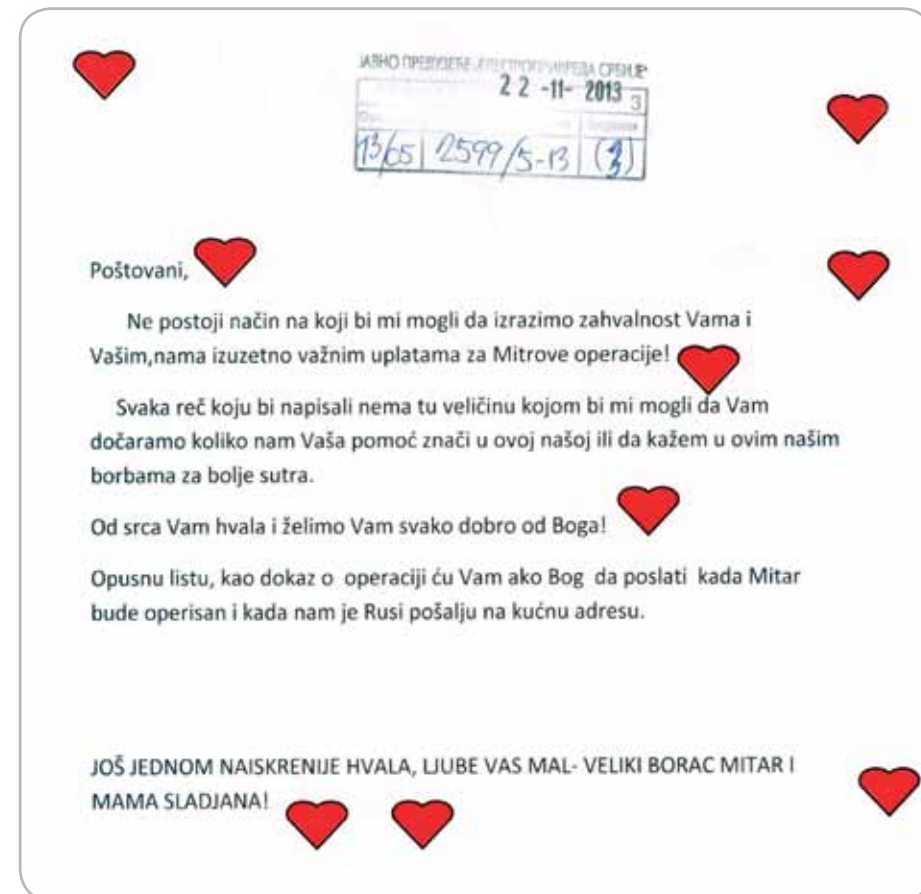 ЈАВНО ПРЕДУЗЕЋЕ ЕЛЕКТРОПРИВРЕДА СРБИЈЕ
22 -11- 2013 3
13/05 2599/5-13
Poštovani,
Ne postoji način na koji bi mi mogli da izrazimo zahvalnost Vama i
Vašim,nama izuzetno važnim uplatama za Mitrove operacije!
Svaka reč koju bi napisali nema tu veličinu kojom bi mi mogli da Vam
dočaramo koliko nam Vaša pomoć znači u ovoj našoj ili da kažem u ovim našim
borbama za bolje sutra.
Od srca Vam hvala i želimo Vam svako dobro od Boga!
Opusnu listu, kao dokaz o operaciji ću Vam ako Bog da poslati kada Mitar
bude operisan i kada nam je Rusi pošalju na kućnu adresu.
JOŠ JEDNOM NAISKRENIJE HVALA, LJUBE VAS MAL- VELIKI BORAC MITAR I
MAMA SLADJANA!